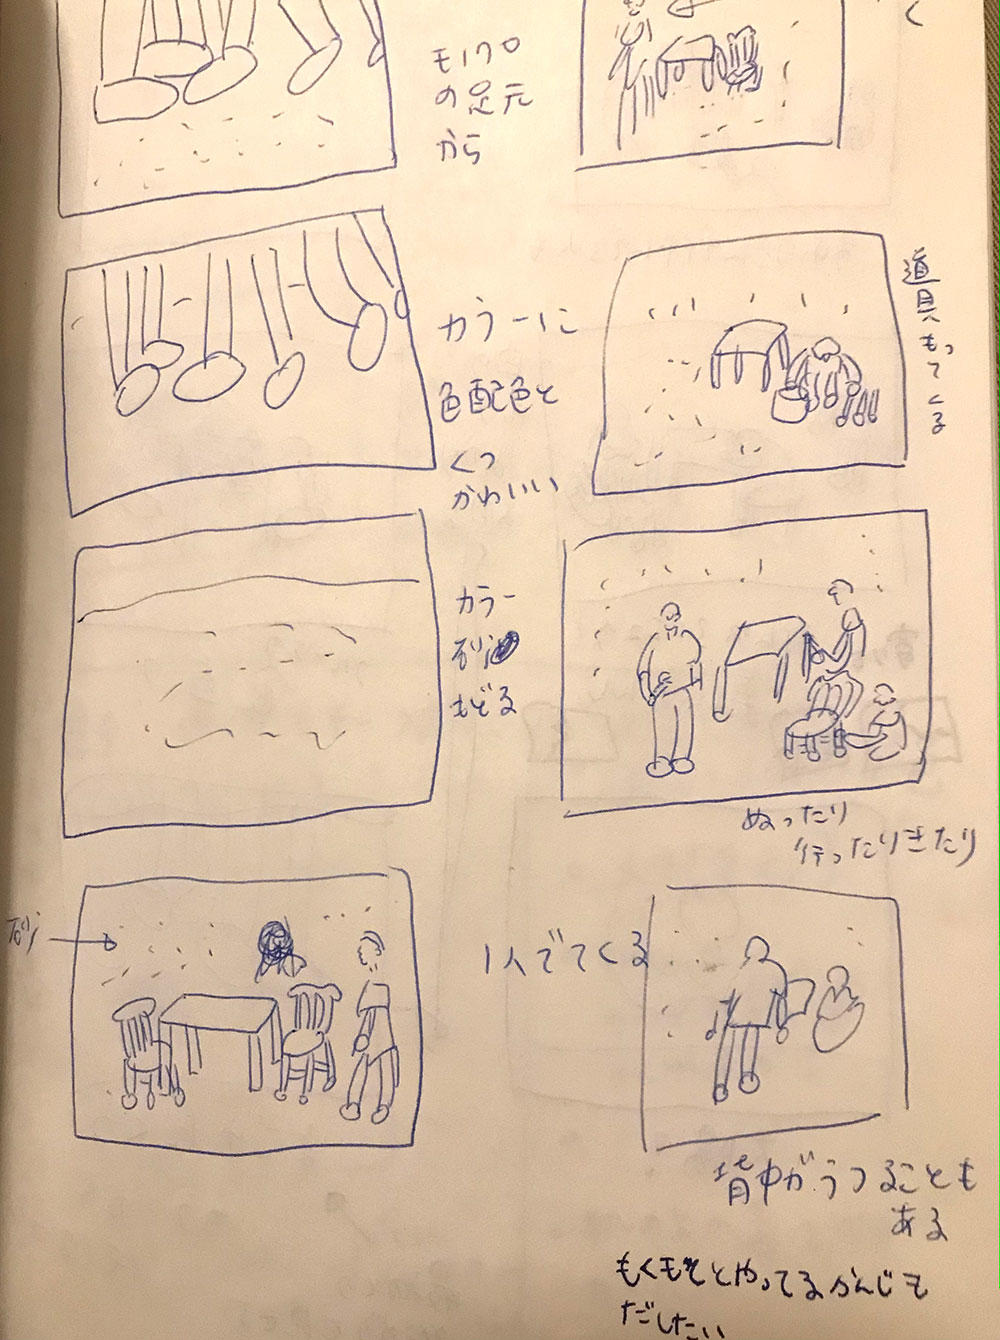 モノクロ
の足元
から
カラーに
色配色と
くつ
かわいい
カラー
砂
もどる
砂
1人でてくる
く
道具もってくる
ぬったり
行ったりきたり
背中がうつることも
ある
もくもくとやってるかんじも
だしたい